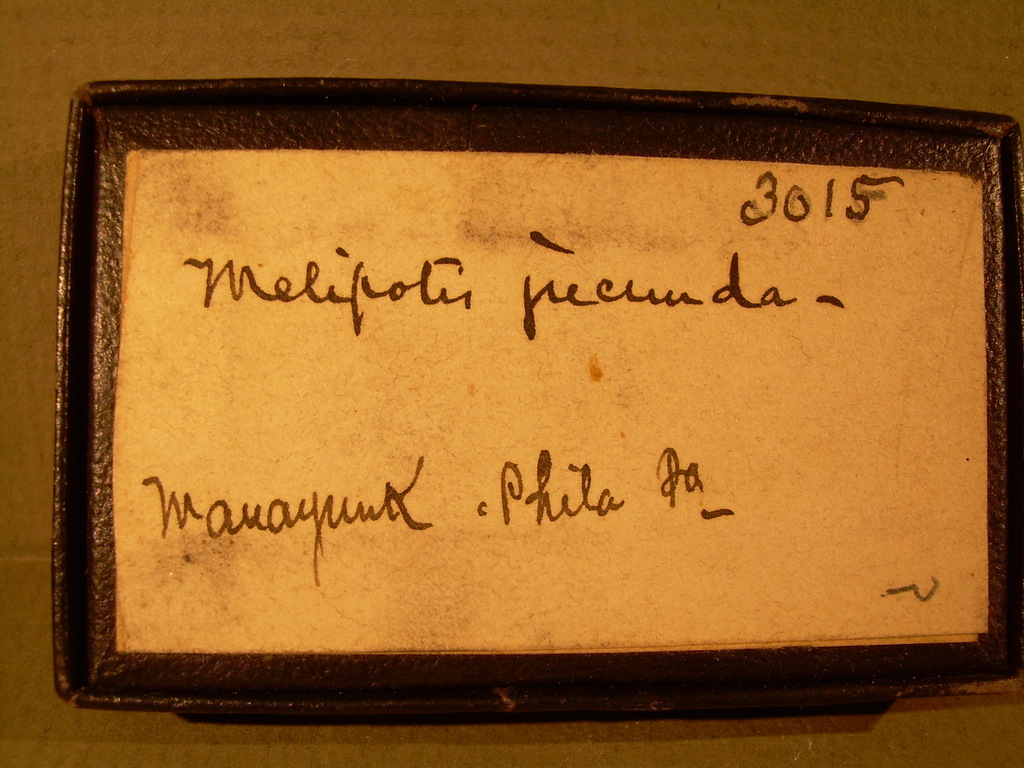 3015
Melipotis jucunda -
Manayunk . Phila Pa -